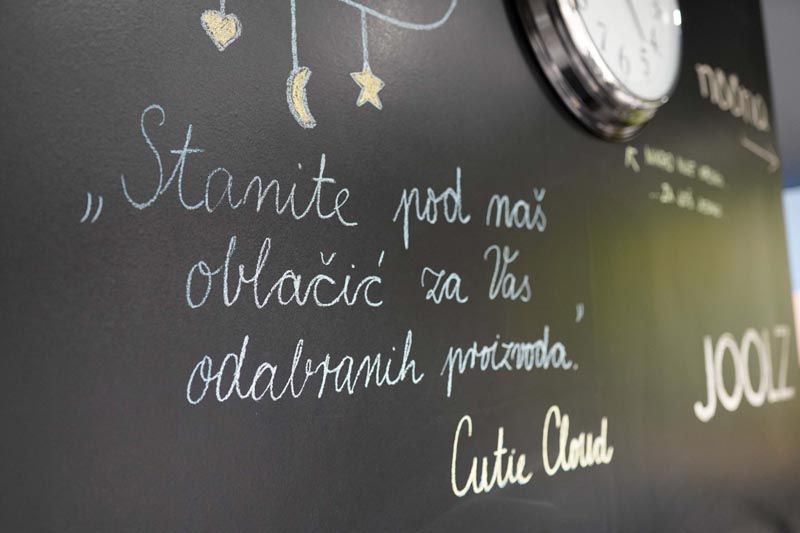 „Stanite pod naš
oblačić za Vas
odabranih proizvoda."
Cutie Cloud
nooña
JOOLZ
7 6 5